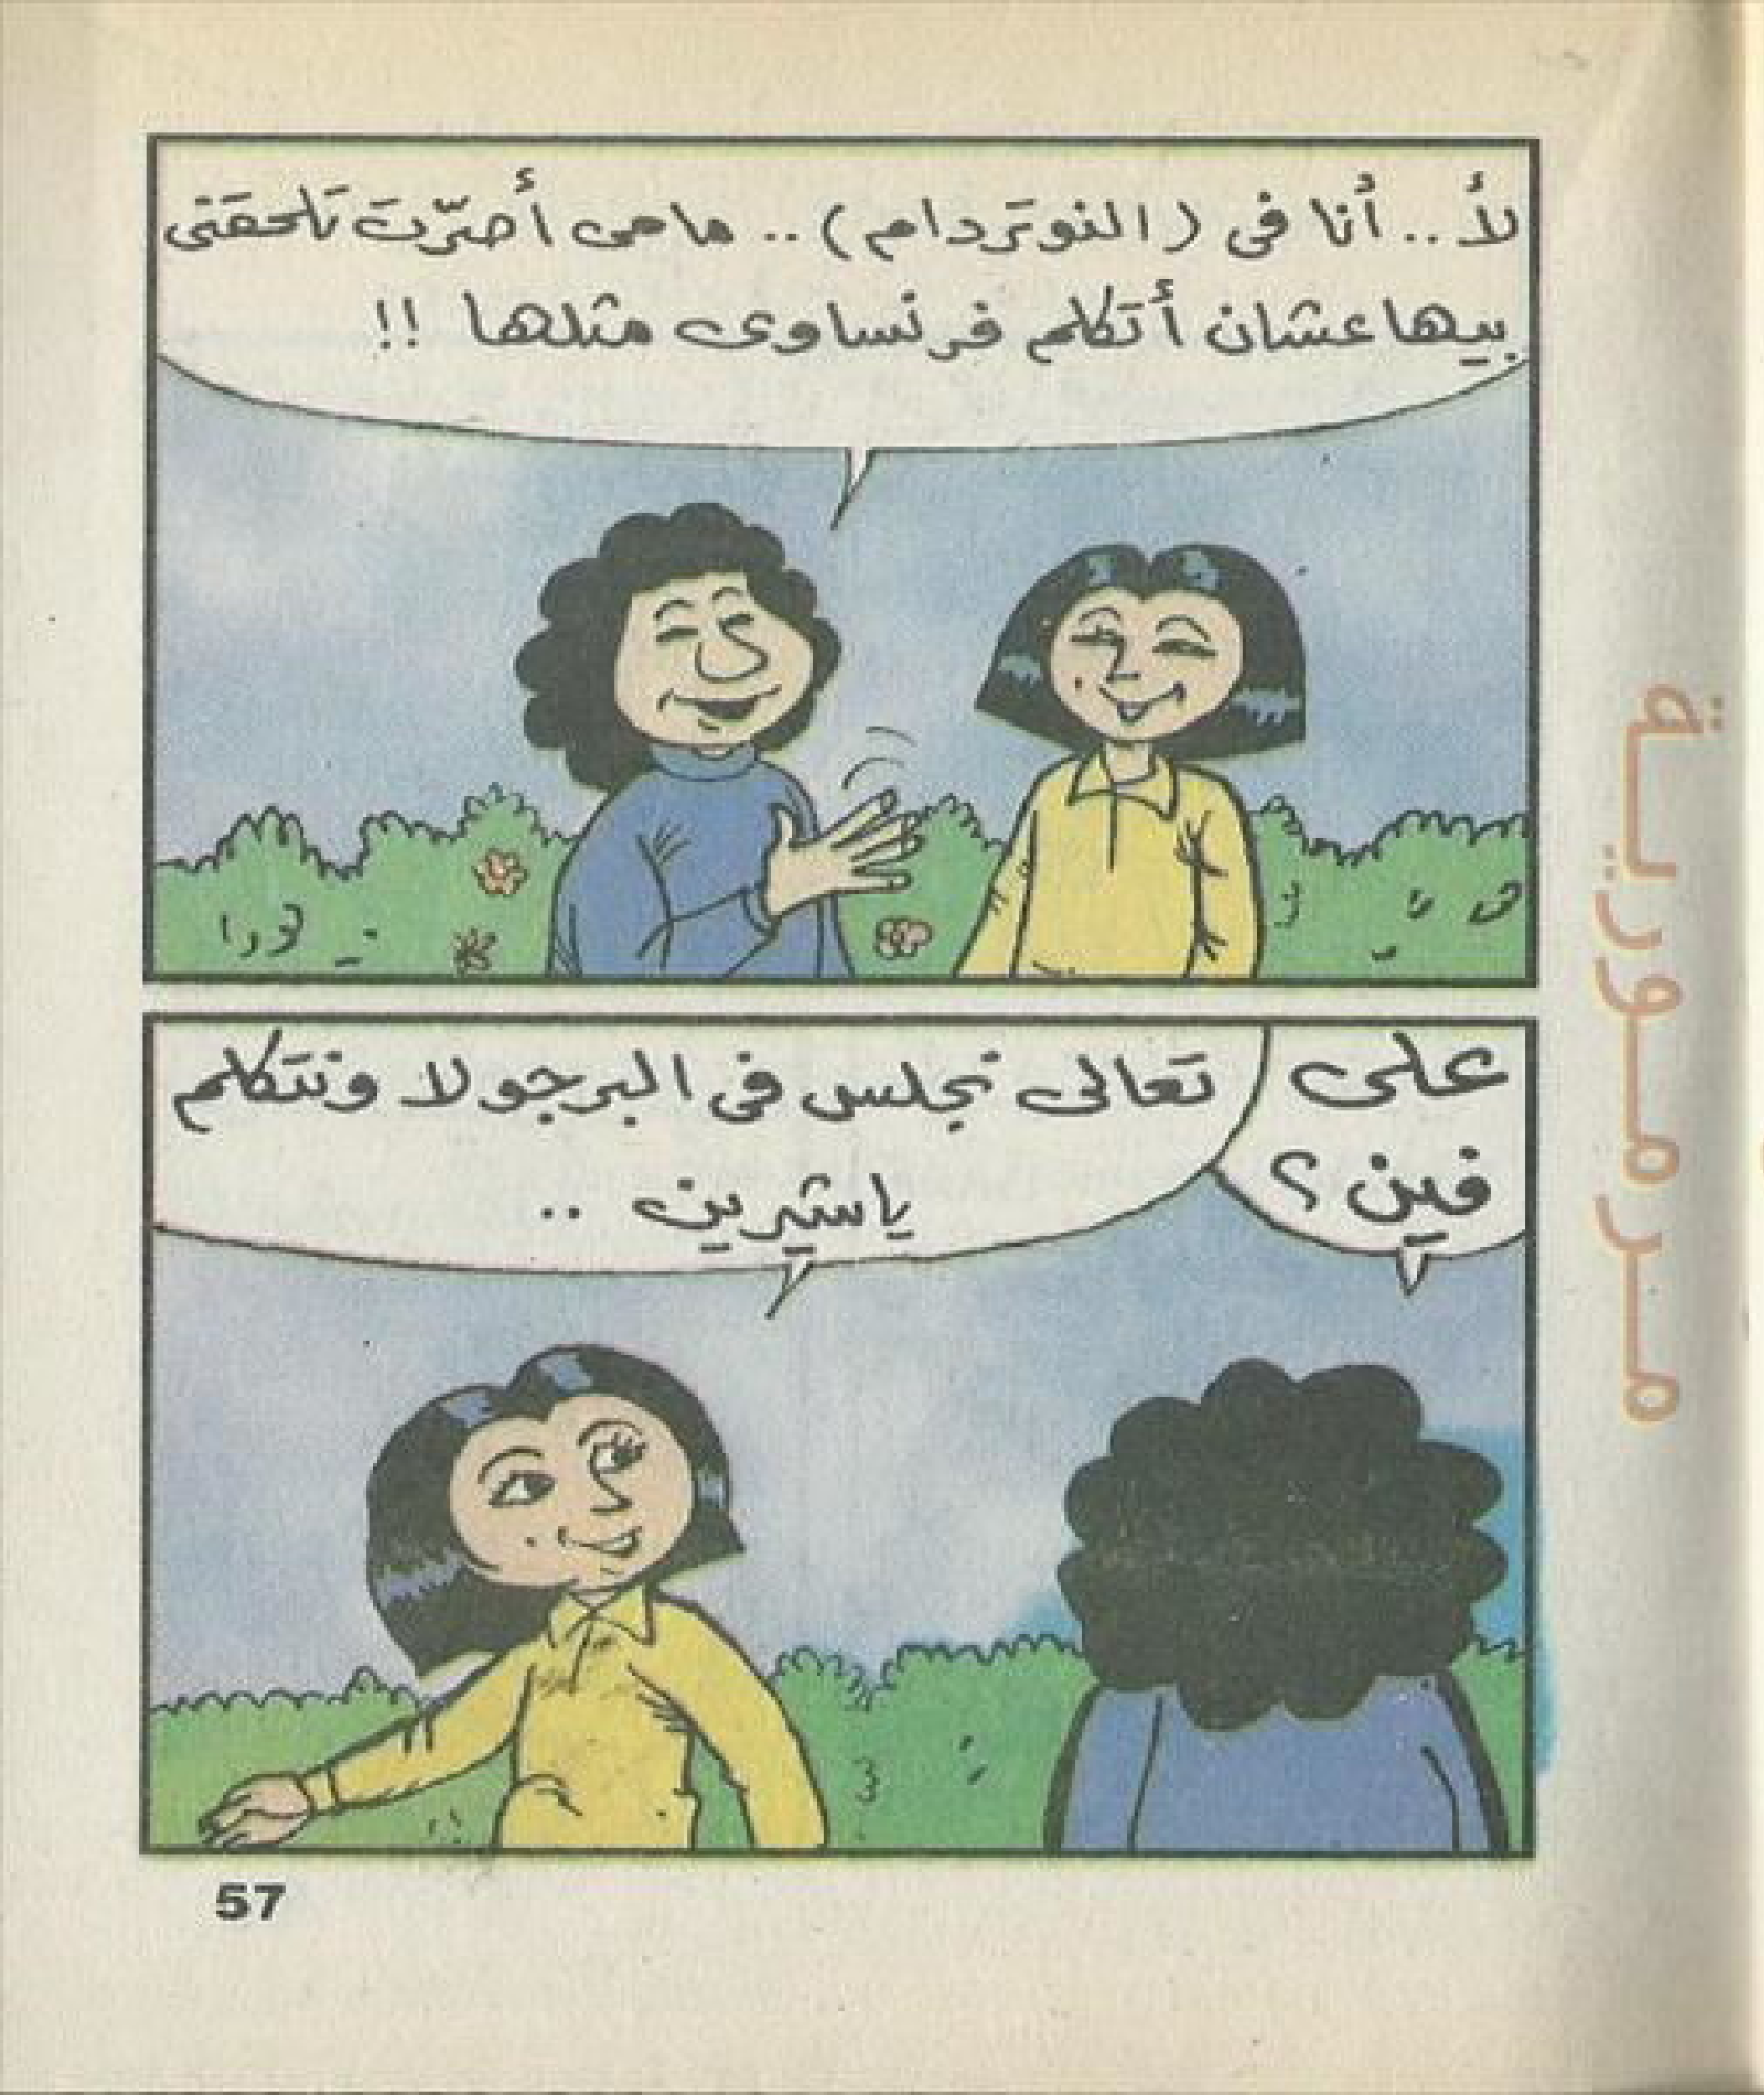 لأ .. أنا فى (النوتردام) .. مامى أصرّت تلحقنى
بيها عشان أتكلم فرنساوى مثلها !!
على
فين ؟
تعالى نجلس فى البرجولا ونتكلم
ياشيرين ..
مرمورية
57